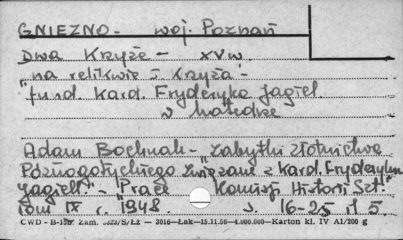 GNIEZNO - woj. Poznań
Dwa Krzyże - XV w.
"na relikwie ś. Krzyża" -
fund. Kard. Fryderyka Jagiel.
w katedrze
Adam Bochnak - "Zabytki złotnictwa
Późnogotyckiego związane z Kard. Fryderykiem
Jagiell" - "Prace Komisji Historii Szt."
Tom IX r. 1948. s. 16-25 il 5.
CWD - B-139 Zam. S/Lz — 3016—Łak—15.11.56—4.000.000—Karton kl. IV A1/200 g